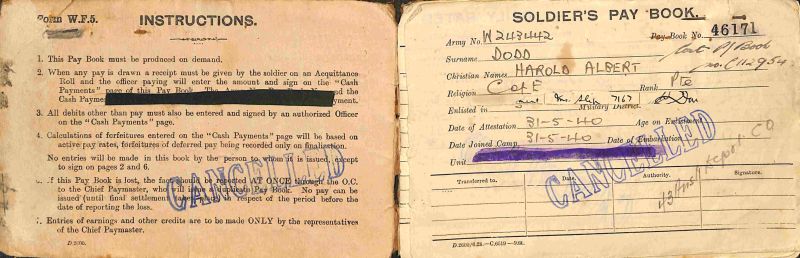 Form W.F.5.
INSTRUCTIONS.
1. This Pay Book must be produced on demand.
2. When any pay is drawn a receipt must be given by the soldier on an Acquittance
Roll and the officer paying will enter the amount and sign on the "Cash
Payments" page of this Pay Book. and the
Cash Payments
3. All debits other than pay must also be entered and signed by an authorized Officer
on the "Cash Payments" page.
4. Calculations of forfeitures entered on the "Cash Payments" page will be based on
active pay rates, forfeitures of deferred pay being recorded only on finalisation.
No entries will be made in this book by the person to whom it is issued, except
to sign on pages 2 and 6.
If this Pay Book is lost, the fact should be reported AT ONCE through the O.C.
to the Chief Paymaster, who a duplicate Pay Book. No pay can be
issued (until final settlement respect of the period before the
date of reporting the loss.
Entries of earnings and other credits are to be made ONLY by the representatives
of the Chief Paymaster.
CANCELLED
D.2600.
SOLDIER'S PAY BOOK.
Army No. W243442
Pay Book No. 46171
Surname DODD
Lost P/Book
No. C112954
Christian Names HAROLD ALBERT
Religion C of E
Rank Pte
Enlisted in Military District.
Date of Attestation 31-5-40
Age on Enlistment
Date Joined Camp 31-5-40
Date of Embarkation
Unit
CANCELLED
Transferred to.
Date.
Authority.
Signature.